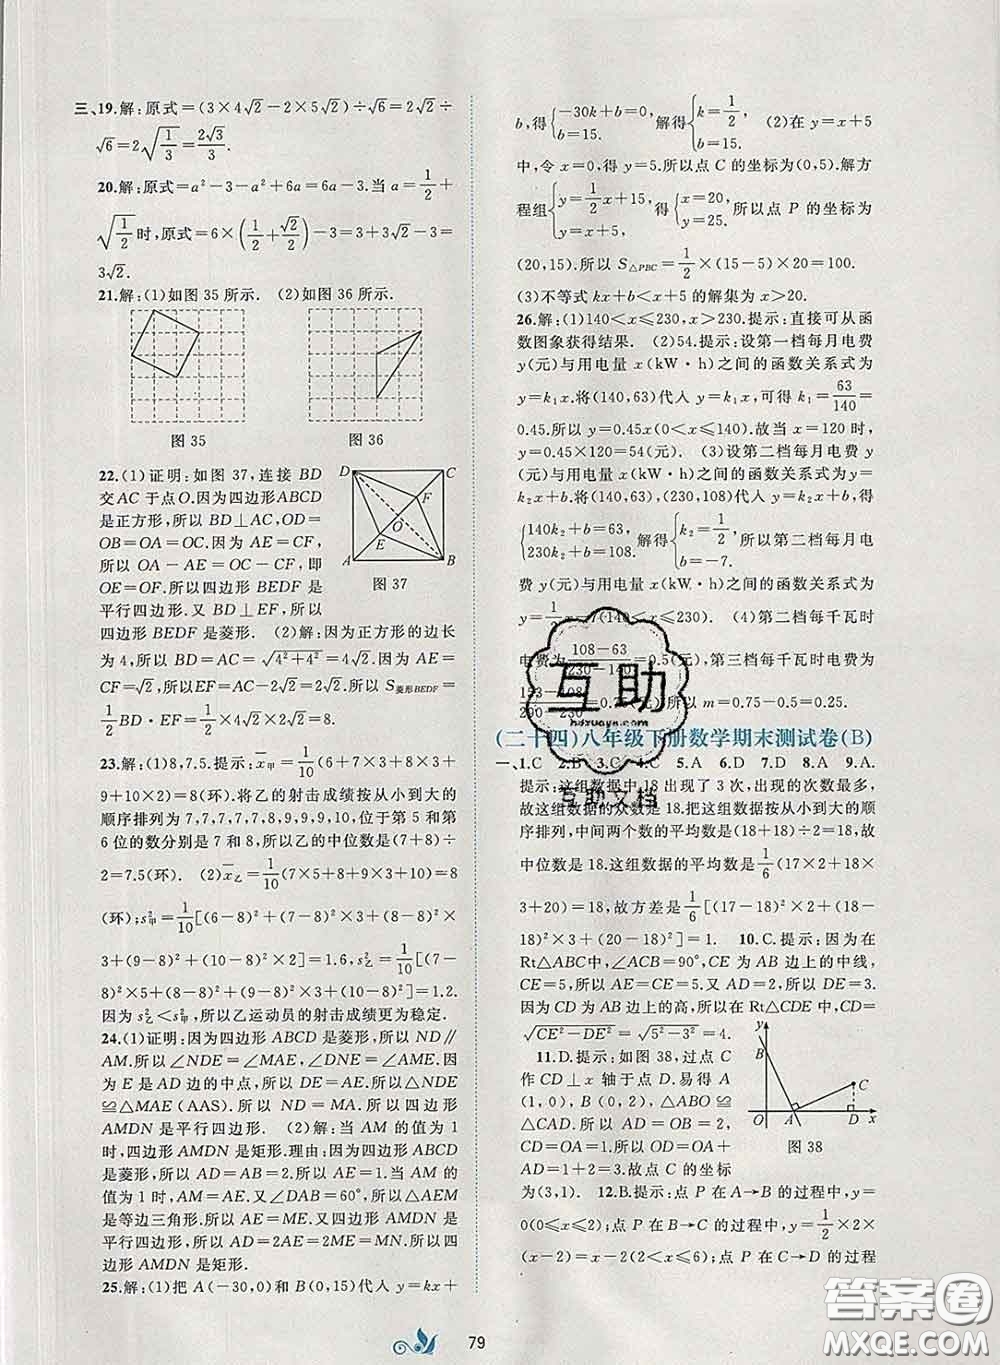 三、19.解:原式=(3×4√2-2×5√2)÷√6=2√2÷
√6=2√(1/3)=2√3/3.
20.解:原式=a²-3-a²+6a=6a-3.当 a=1/2+
√(1/2)时,原式=6×(1/2+√2/2)-3=3+3√2-3=
3√2.
21.解:(1)如图 35 所示. (2)如图 36 所示.
图 35
图 36
22.(1)证明:如图 37,连接 BD
交AC于点O.因为四边形ABCD
是正方形,所以 BD⊥AC,OD=
OB=OA=OC.因为 AE=CF,
所以 OA-AE=OC-CF,即
OE=OF.所以四边形 BEDF 是
平行四边形.又 BD⊥EF,所以
四边形 BEDF 是菱形. (2)解:因为正方形的边长
D
C
F
O
E
A
B
图 37
为 4,所以 BD=AC=√(4²+4²)=4√2.因为 AE=
CF=√2,所以 EF=4√2-2√2=2√2.所以 S菱形BEDF=
1/2BD·EF=1/2×4√2×2√2=8.
23.解:(1)8,7.5.提示:x̄甲=1/10(6+7×3+8×
3+9+10×2)=8(环).将乙的射击成绩按从小到大的
顺序排列为 7,7,7,7,7,8,9,9,9,10,位于第 5 和第
6 位的数分别是 7 和 8,所以乙的中位数是(7+8)÷
2=7.5(环). (2)x̄乙=1/10(7×5+8+9×3+10)=8
(环);s²甲=1/10[(6-8)²+(7-8)²×3+(8-8)²×
3+(9-8)²+(10-8)²×2]=1.6,s²乙=1/10[(7-
8)²×5+(8-8)²+(9-8)²×3+(10-8)²]=1.2.
因为 s²乙<s²甲,所以乙运动员的射击成绩更为稳定.
24.(1)证明:因为四边形 ABCD 是菱形,所以 ND∥
AM.所以∠NDE=∠MAE,∠DNE=∠AME.因
为 E 是 AD 边的中点,所以 DE=AE.所以△NDE
≌△MAE(AAS).所以 ND=MA.所以四边形
AMDN 是平行四边形. (2)解:当 AM 的值为 1 时,
四边形 AMDN 是矩形.理由:因为四边形 ABCD
是菱形,所以 AD=AB=2.所以 AE=1.当 AM 的
值为 1 时,AM=AE.又∠DAB=60°,所以△AME
是等边三角形.所以 AE=ME.又四边形 AMDN 是
平行四边形,所以 AD=2AE=2ME=MN.所以四
边形 AMDN 是矩形.
25.解:(1)把 A(-30,0)和 B(0,15)代入 y=kx+
b,得{-30k+b=0, b=15. 解得{k=1/2, b=15. (2)在 y=x+5
中,令 x=0,得 y=5.所以点 C 的坐标为(0,5).解方
程组{y=1/2x+15, y=x+5, 得{x=20, y=25. 所以点 P 的坐标为
(20,15).所以 S△PBC=1/2×(15-5)×20=100.
(3)不等式 kx+b<x+5 的解集为 x>20.
26.解:(1)140<x≤230,x>230.提示:直接可从
函数图象获得结果. (2)54.提示:设第一档每月电费
y(元)与用电量 x(kW·h)之间的函数关系式为
y=k₁x.将(140,63)代入 y=k₁x,可得 k₁=63/140=
0.45.所以 y=0.45x(0≤x≤140).故当 x=120 时,
y=0.45×120=54(元). (3)设第二档每月电费 y
(元)与用电量 x(kW·h)之间的函数关系式为 y=
k₂x+b.将(140,63),(230,108)代入 y=k₂x+b,得
{140k₂+b=63, 230k₂+b=108. 解得{k₂=1/2, b=-7. 所以第二档每月电
费 y(元)与用电量 x(kW·h)之间的函数关系式为
y=1/2x-7(140<x≤230). (4)第二档每千瓦时
电费为(108-63)/(230-140)=0.5(元),第三档每千瓦时电费为
(153-108)/(290-230)=0.75(元),所以 m=0.75-0.5=0.25.
(二十四)八年级下册数学期末测试卷(B)
一、1.C 2.B 3.C 4.C 5.A 6.D 7.D 8.A 9.A.
提示:这组数据中,18 出现了 3 次,出现的次数最多,
故这组数据的众数是 18.把这组数据按从小到大的顺
序排列,中间两个数的平均数是(18+18)÷2=18,故
中位数是 18.这组数据的平均数是1/6(17×2+18×
3+20)=18,故方差是1/6[(17-18)²×2+(18-
18)²×3+(20-18)²]=1. 10.C.提示:因为在
Rt△ABC中,∠ACB=90°,CE 为 AB 边上的中线,
所以 CE=AE=5.因为 AD=2,所以 DE=AE-AD=3.
因为 CD 为 AB 边上的高,所以在 Rt△CDE 中,CD=
√(CE²-DE²)=√(5²-3²)=4.
11.D.提示:如图 38,过点 C
作 CD⊥x 轴于点 D.因为 A
(1,0),B(0,2),△ABO≌
△CAD.所以 AD=OB=2,
CD=OA=1.所以 OD=OA+
AD=1+2=3.故点 C 的坐标
为(3,1). 12.B.提示:点 P 在 A→B 的过程中,y=
y
B
C
O
A
D
x
图 38
0(0≤x≤2);点 P 在 B→C 的过程中,y=1/2×2×
(x-2)=x-2(2<x≤6);点 P 在 C→D 的过程中
79
互助
hdzuoye.com
互助文档
答案圈
MXQE.COM